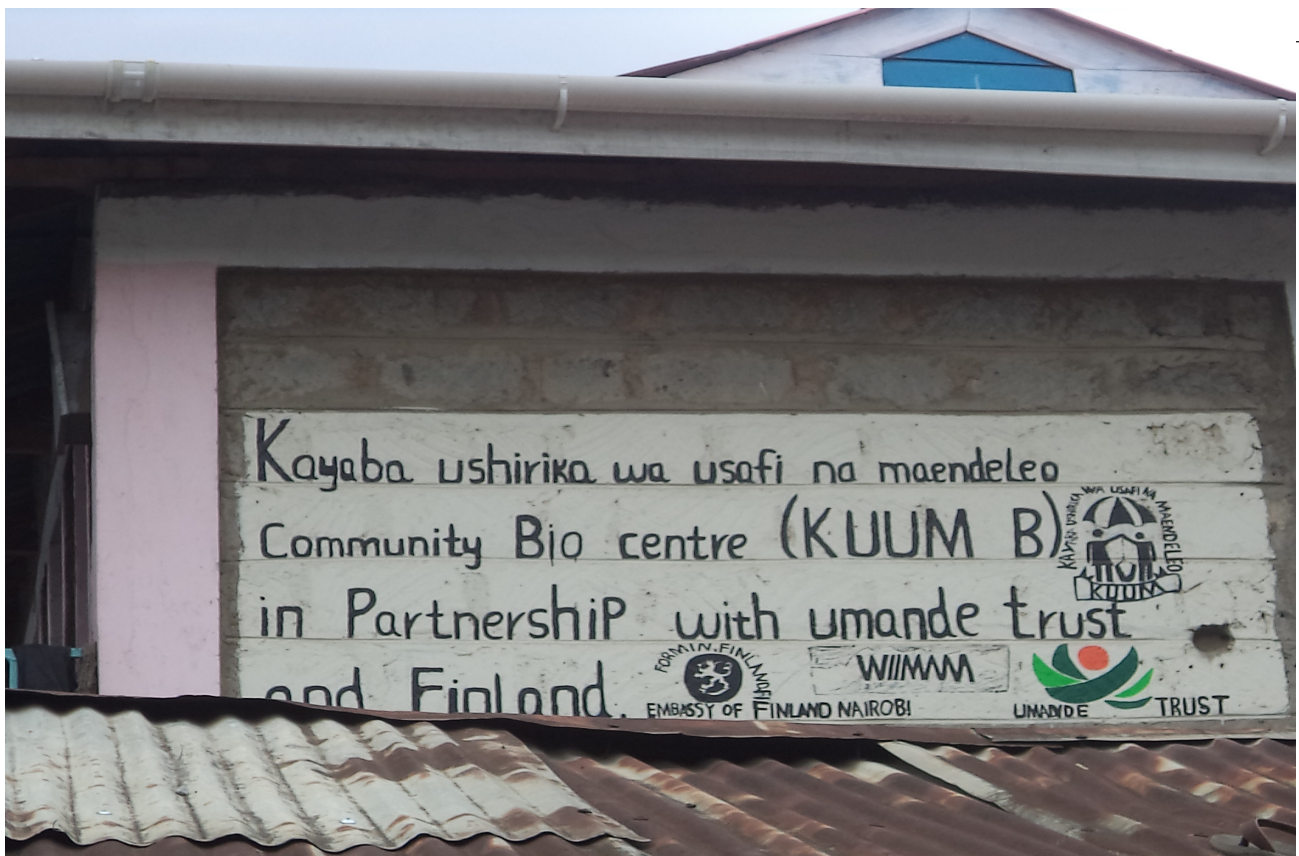 Kayaba ushirika wa usafi na maendeleo
Community Bio centre (KUUM B)
KAYABA USHIRIKA WA USAFI NA MAENDELEO
KUUM
in PartnershiP with umande trust
and Finland.
FORMIN.FINLAND.FI
EMBASSY OF FINLAND NAIROBI
WIIMAM
UMANDE TRUST